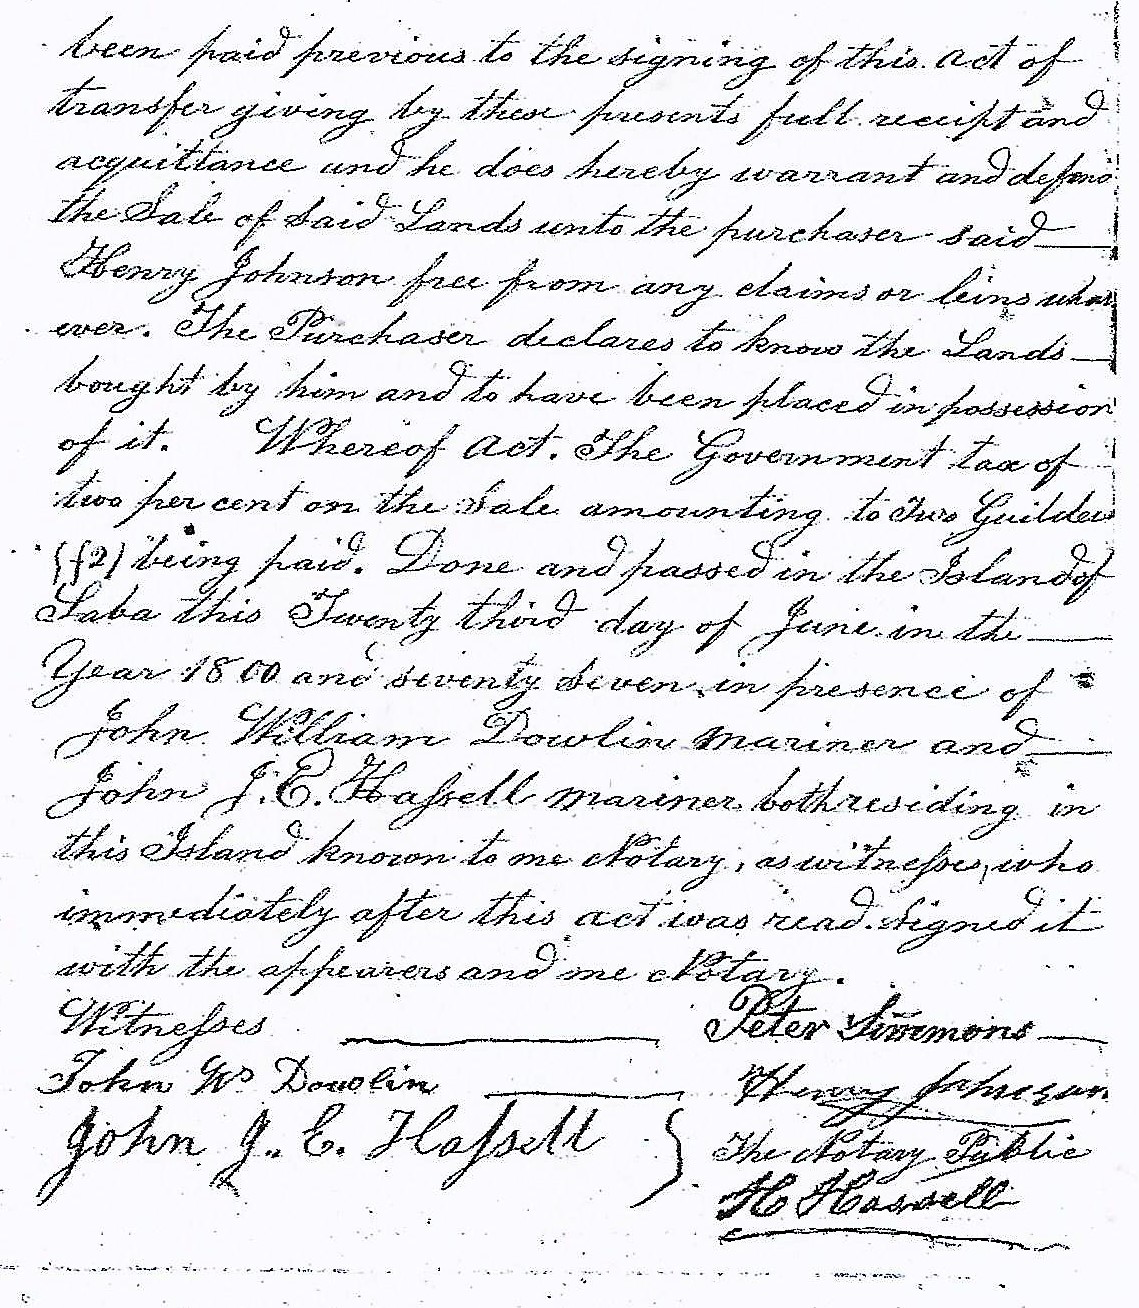 been paid previous to the signing of this act of
transfer giving by these presents full receipt and
acquittance and he does hereby warrant and defend
the Sale of Said Lands unto the purchaser said
Henry Johnson free from any claims or leins what
ever. The Purchaser declares to know the Lands
bought by him and to have been placed in possession
of it. Whereof Act. The Government tax of
two per cent on the Sale amounting to Two Guilders
(f2) being paid. Done and passed in the Island of
Saba this Twenty third day of June in the
Year 1800 and seventy Seven in presence of
John William Dowlin Mariner and
John J. E. Haſsell mariner both residing in
this Island known to me Notary, as witneſses, who
immediately after this act was read. Signed it
with the appearers and me Notary.
Witneſses Peter Simmons
John Wm Dowlin Henry Johnson
John J. E. Haſsell } The Notary Public
H Hassell